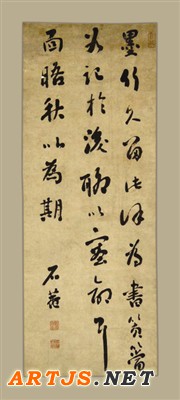 墨竹久留此譯為書篔簹
谷記於後聊以塞命耳
面晤秋以為期
石菴
ARTJS.NET